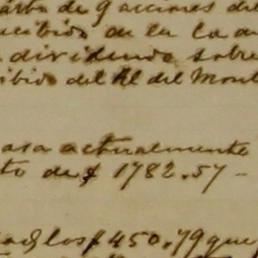 de 9 acciones del
recibido en la
dividendo sobre
del Rl del Mont
actualmente
to de $ 1782.57 -
los $ 450.79 que